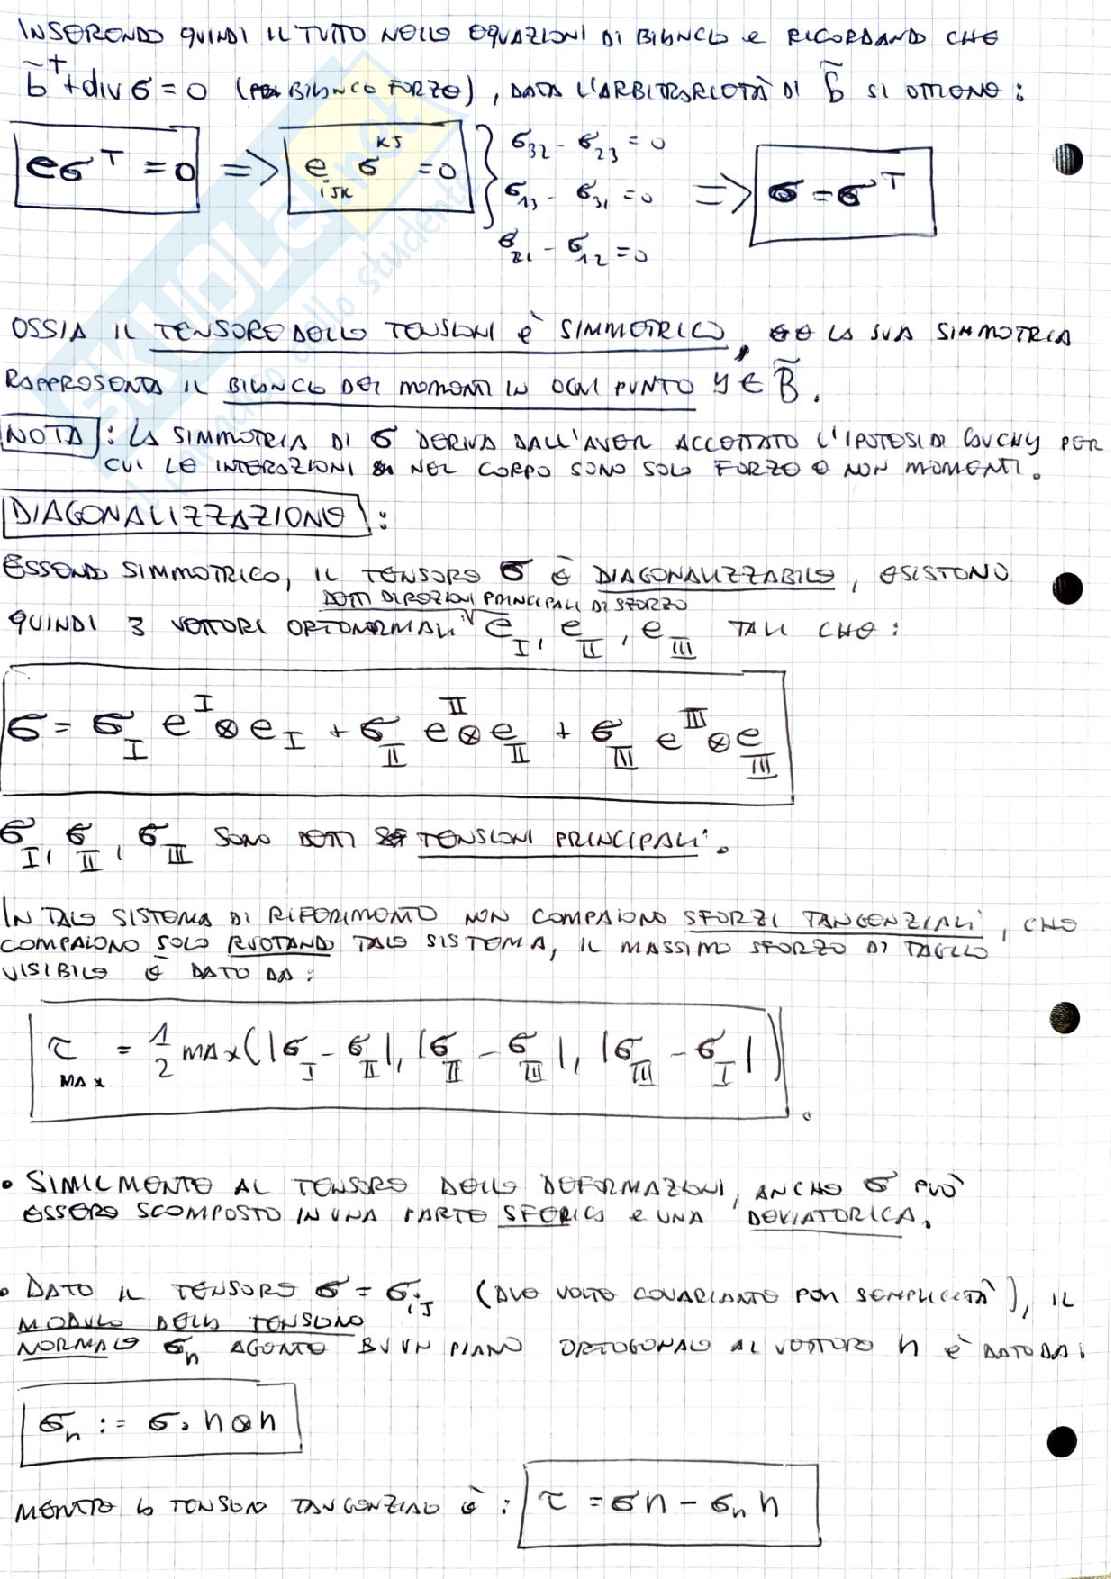 INSERENDO QUINDI IL TUTTO NELLE EQUAZIONI DI BILANCIO e RICORDANDO CHE
b̃⁺ + div σ = 0 (PER BILANCO FORZE), DATA L'ARBITRARIETÀ DI b̃ SI OTTIENE:
eσᵀ = 0 => e_ijk σ^kj = 0 } σ₃₂ - σ₂₃ = 0
σ₁₃ - σ₃₁ = 0 => σ = σᵀ
σ₂₁ - σ₁₂ = 0
OSSIA IL TENSORE DELLE TENSIONI È SIMMETRICO, E LA SUA SIMMETRIA
RAPPRESENTA IL BILANCIO DEI MOMENTI IN OGNI PUNTO y ∈ B̃.
NOTA: LA SIMMETRIA DI σ DERIVA DALL'AVER ACCETTATO L'IPOTESI DI CAUCHY PER
CUI LE INTERAZIONI NEL CORPO SONO SOLO FORZE E NON MOMENTI.
DIAGONALIZZAZIONE:
ESSENDO SIMMETRICO, IL TENSORE σ È DIAGONALIZZABILE, ESISTONO
DETTI DIREZIONI PRINCIPALI DI SFORZO
QUINDI 3 VETTORI ORTONORMALI e_I, e_II, e_III TALI CHE:
σ = σ_I e^I ⊗ e_I + σ_II e^II ⊗ e_II + σ_III e^III ⊗ e_III
σ_I, σ_II, σ_III SONO DETTI TENSIONI PRINCIPALI.
IN TALE SISTEMA DI RIFERIMENTO NON COMPAIONO SFORZI TANGENZIALI, CHE
COMPAIONO SOLO RUOTANDO TALE SISTEMA, IL MASSIMO SFORZO DI TAGLIO
VISIBILE È DATO DA:
τ_MAX = 1/2 MAX(|σ_I - σ_II|, |σ_II - σ_III|, |σ_III - σ_I|).
• SIMILMENTE AL TENSORE DELLE DEFORMAZIONI, ANCHE σ PUÒ
ESSERE SCOMPOSTO IN UNA PARTE SFERICA e UNA DEVIATORICA.
• DATO IL TENSORE σ = σ_ij (DUE VOLTE COVARIANTE PER SEMPLICITÀ), IL
MODULO DELLA TENSIONE
NORMALE σₙ AGENTE SU UN PIANO ORTOGONALE AL VETTORE n È DATO DA:
σₙ := σ · n ⊗ n
MENTRE LA TENSIONE TANGENZIALE È: τ = σn - σₙ n
SKUOLA.net
il paradiso dello studente